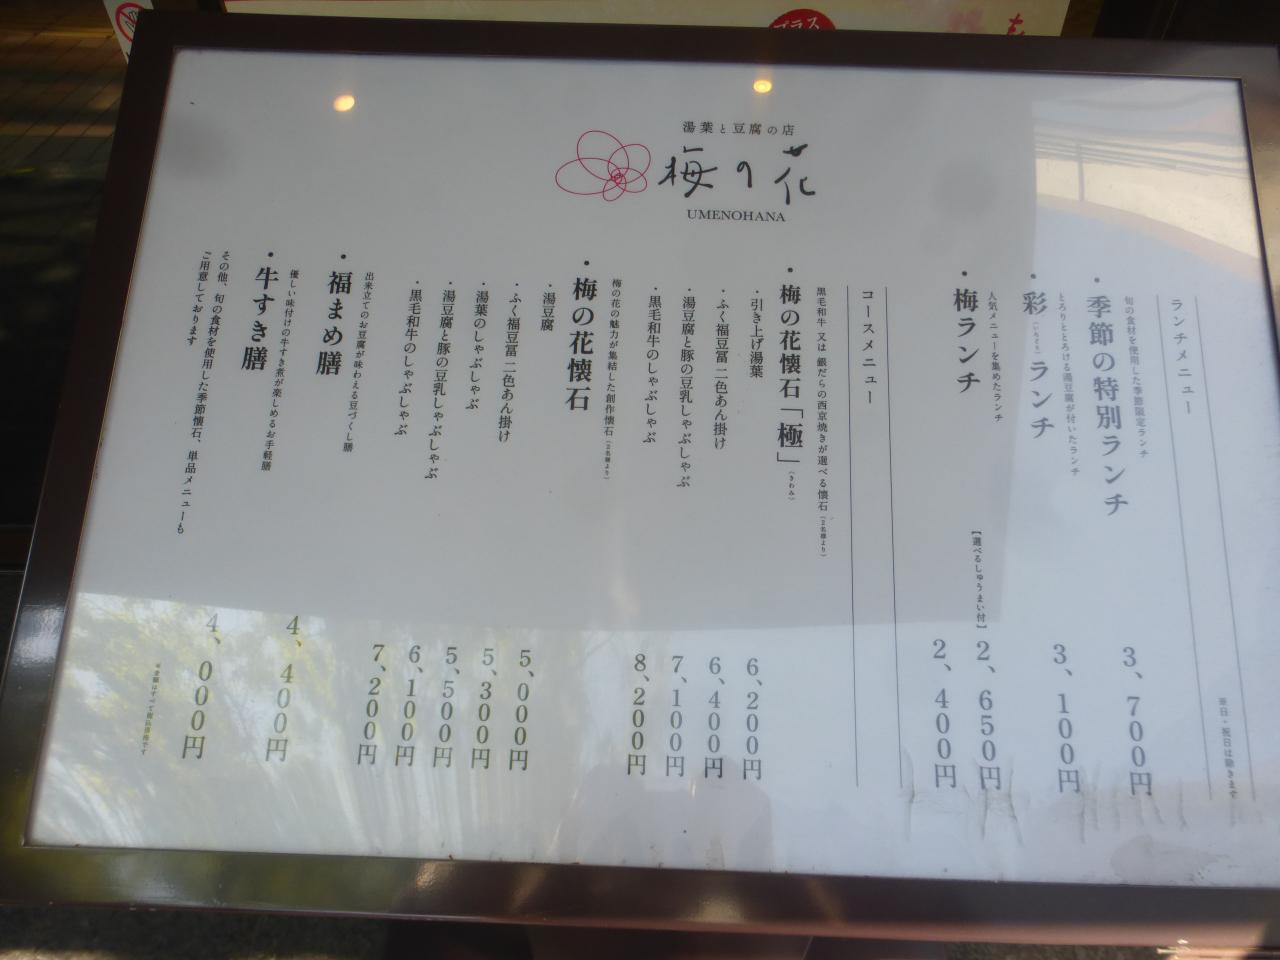 プラス
湯葉と豆腐の店
梅の花
UMENOHANA
ランチメニュー
※日・祝日は除きます
旬の食材を使用した季節限定ランチ
・季節の特別ランチ
3、700円
とろりととろける湯豆腐が付いたランチ
・彩(いろどり)ランチ
3、100円
人気メニューを集めたランチ
【選べるしゅうまい付】2、650円
・梅ランチ
2、400円
コースメニュー
黒毛和牛 又は 銀だらの西京焼きが選べる懐石(2名様より)
・梅の花懐石「極」(きわみ)
・引き上げ湯葉
6、200円
・ふく福豆冨 二色あん掛け
6、400円
・湯豆腐と豚の豆乳しゃぶしゃぶ
7、100円
・黒毛和牛のしゃぶしゃぶ
8、200円
梅の花の魅力が集結した創作懐石(2名様より)
・梅の花懐石
・湯豆腐
5、000円
・ふく福豆冨 二色あん掛け
5、300円
・湯葉のしゃぶしゃぶ
5、500円
・湯豆腐と豚の豆乳しゃぶしゃぶ
6、100円
・黒毛和牛のしゃぶしゃぶ
7、200円
出来立てのお豆腐が味わえる豆づくし膳
・福まめ膳
4、400円
優しい味付けの牛すき煮が楽しめるお手軽膳
・牛すき膳
4、000円
その他、旬の食材を使用した季節懐石、単品メニューも
ご用意しております
※金額はすべて税込価格です